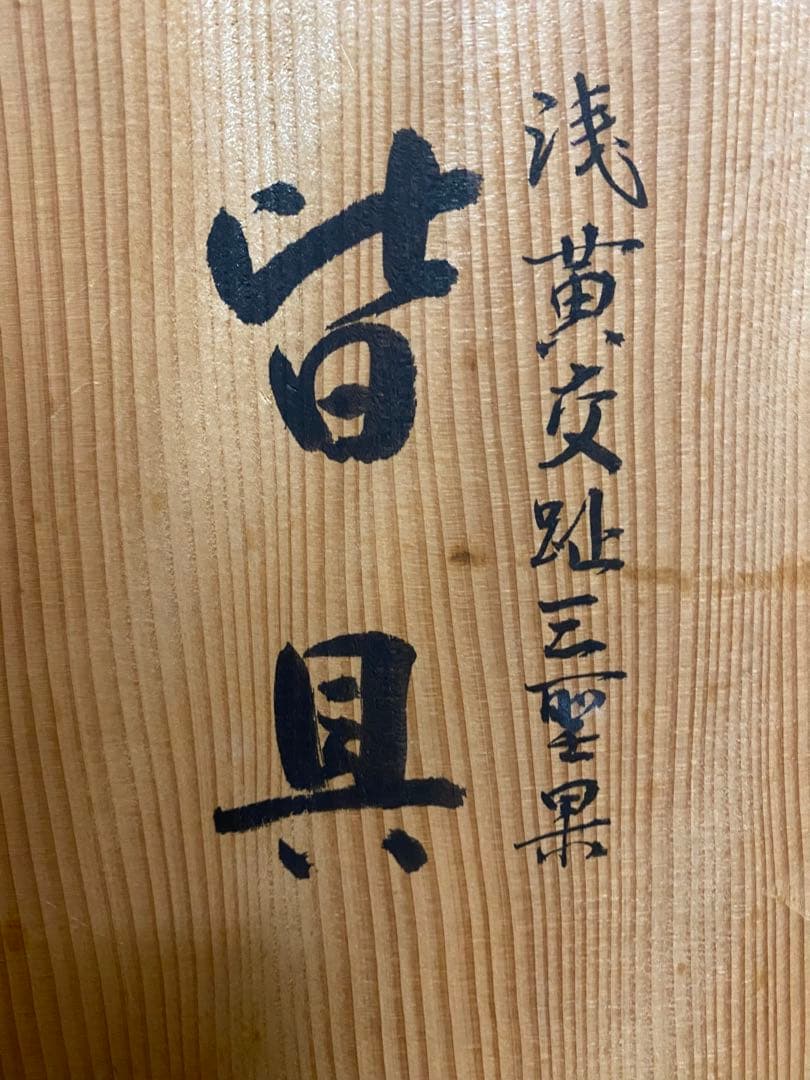 浅黄交趾三聖果
皆具